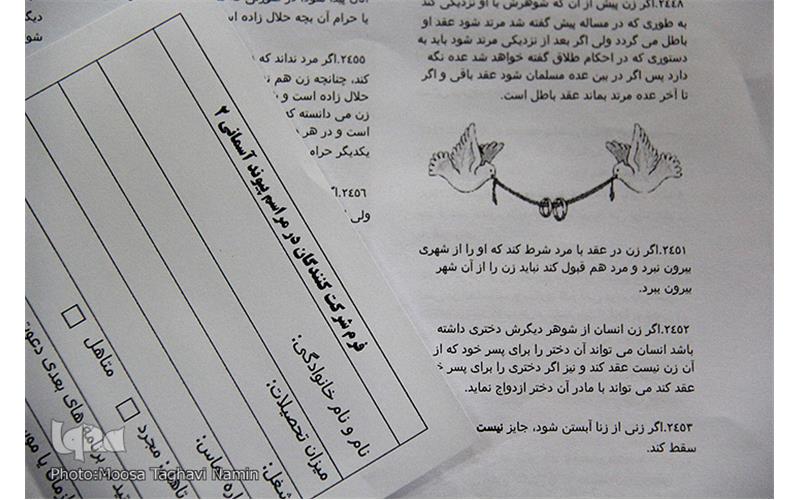 ۲۴۴۸.اگر زن پیش از آن که شوهرش با او نزدیکی کند
به طوری که در مساله پیش گفته شد مرتد شود عقد او
باطل می گردد ولی اگر بعد از نزدیکی مرتد شود باید به
دستوری که در احکام طلاق گفته خواهد شد عده نگه
دارد پس اگر در بین عده مسلمان شود عقد باقی و اگر
تا آخر عده مرتد بماند عقد باطل است.
۲۴۵۱.اگر زن در عقد با مرد شرط کند که او را از شهری
بیرون نبرد و مرد هم قبول کند نباید زن را از آن شهر
بیرون ببرد.
۲۴۵۲.اگر زن انسان از شوهر دیگرش دختری داشته
باشد انسان می تواند آن دختر را برای پسر خود که از
آن زن نیست عقد کند و نیز اگر دختری را برای پسر
عقد کند می تواند با مادر آن دختر ازدواج نماید.
۲۴۵۳.اگر زنی از زنا آبستن شود، جایز نیست
سقط کند.
یا حرام آن بچه حلال زاده
۲۴۵۵.اگر مرد نداند که
کند، چنانچه زن هم
حلال زاده است و
زن می دانسته که
است و در هر
یکدیگر حرام
۲۴۵۶.
ولی
فرم شرکت کنندگان در مراسم پیوند آسمانی ۲
نام و نام خانوادگی:
میزان تحصیلات:
شغل:
تماس:
مجرد
متاهل
های بعدی دعوت
Photo:Moosa Taghavi Namin